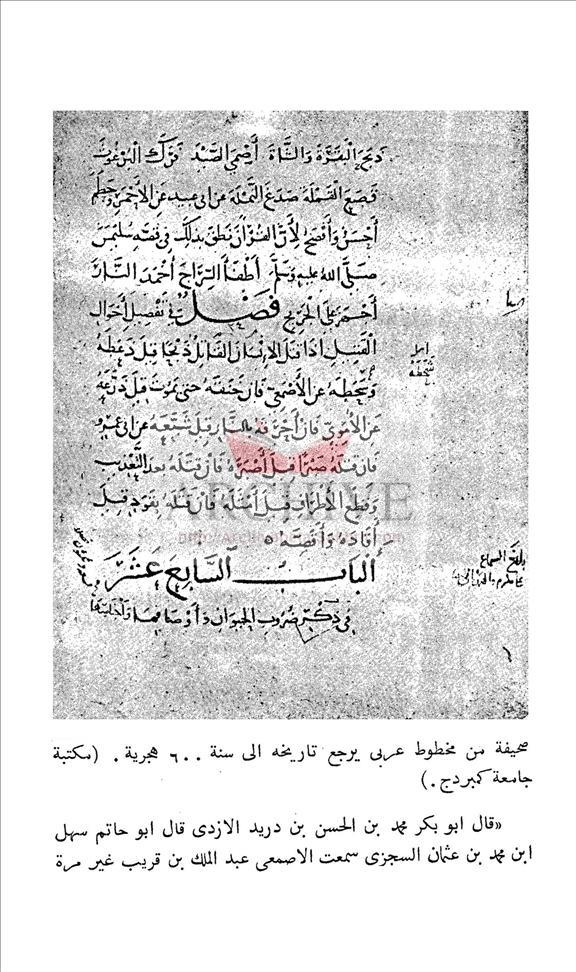 ذبح البقرة والشاة أصمى الصيد فرك البرغوث
قصع القملة صدغ النملة عن ابي عبيد عن الأحمر وحطم
أحسن وأفصح لأن القرآن نطق بذلك في قصة سليمن
صلى الله عليه وسلم أطفأ السراج أخمد النار
أجهز على الجريح فصل في تفصيل أحوال
القتيل اذا قتل الإنسان القاتل ذبحا قيل ذعطه
وسحطه عن الأصمعي فان خنقه حتى يموت قيل ذرعه
عن الأموي فان أحرقه بالنار قيل شيعه عن ابي عمرو
فان قتله صبرا قيل أصبره فان قتله بعد التعذيب
وقطع الأطراف قيل أمثله فان قتله بقود قيل
أقاده وأقصه
الباب السابع عشر
في ذكر ضروب الحيوان وأوصافها
بلغ السماع
شحطه
ARCHIVE
صحيفة من مخطوط عربى يرجع تاريخه الى سنة ٦٠٠ هجرية . (مكتبة
جامعة كمبردج .)
«قال ابو بكر محمد بن الحسن بن دريد الازدى قال ابو حاتم سهل
ابن محمد بن عثمان السجزى سمعت الاصمعى عبد الملك بن قريب غير مرة